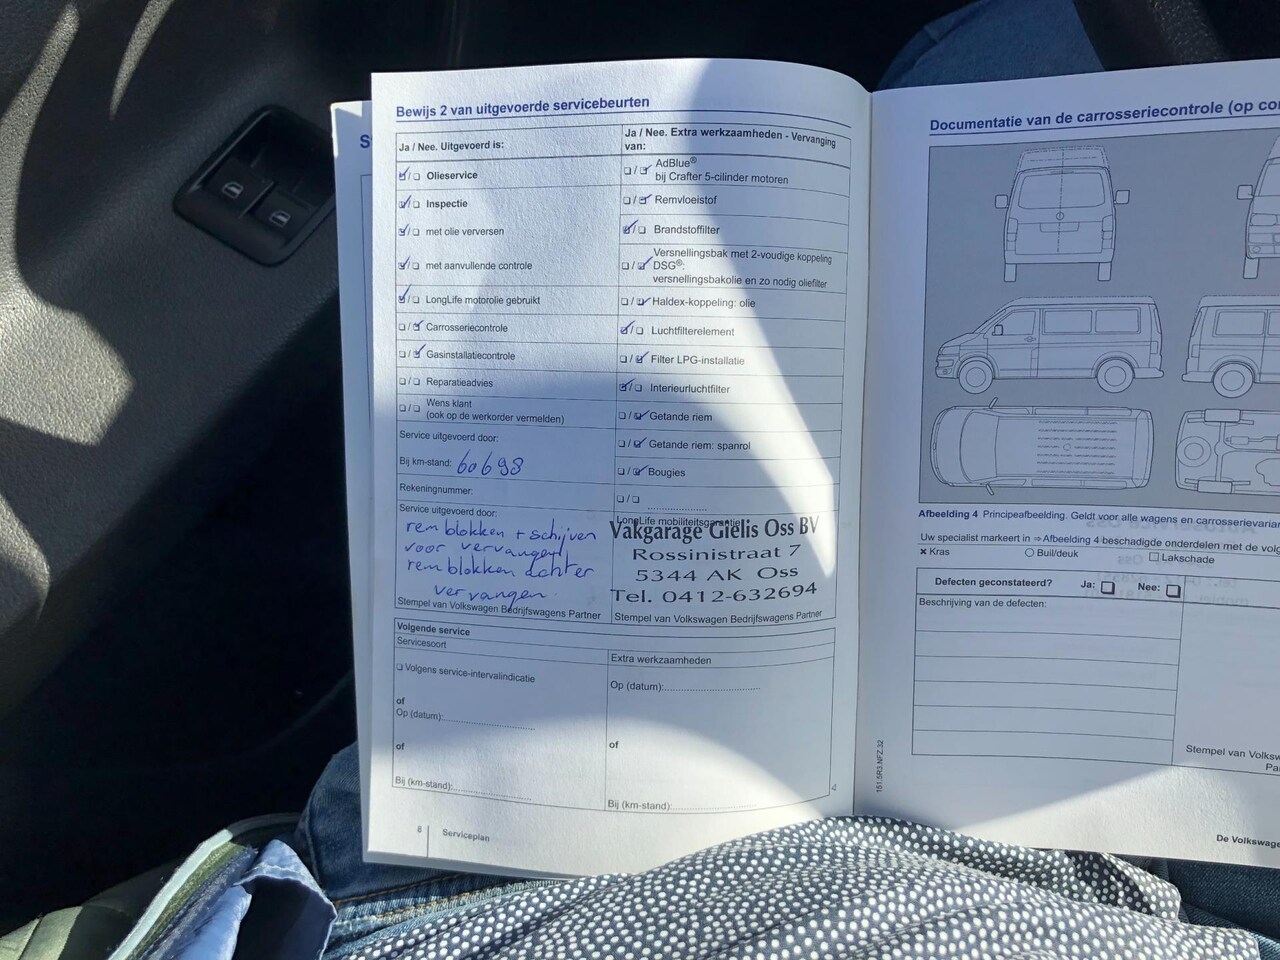 Bewijs 2 van uitgevoerde servicebeurten
Ja / Nee. Uitgevoerd is:
Olieservice
Inspectie
met olie verversen
met aanvullende controle
LongLife motorolie gebruikt
Carrosseriecontrole
Gasinstallatiecontrole
Reparatieadvies
Wens klant
(ook op de werkorder vermelden)
Service uitgevoerd door:
Bij km-stand: 60698
Rekeningnummer:
Service uitgevoerd door:
rem blokken + schijven
voor vervangen
rem blokken achter
vervangen.
Stempel van Volkswagen Bedrijfswagens Partner
Ja / Nee. Extra werkzaamheden - Vervanging
van:
AdBlue®
bij Crafter 5-cilinder motoren
Remvloeistof
Brandstoffilter
Versnellingsbak met 2-voudige koppeling
DSG®:
versnellingsbakolie en zo nodig oliefilter
Haldex-koppeling: olie
Luchtfilterelement
Filter LPG-installatie
Interieurluchtfilter
Getande riem
Getande riem: spanrol
Bougies
LongLife mobiliteitsgarantie
Vakgarage Gielis Oss BV
Rossinistraat 7
5344 AK Oss
Tel. 0412-632694
Stempel van Volkswagen Bedrijfswagens Partner
Volgende service
Servicesoort
Volgens service-intervalindicatie
of
Op (datum):
of
Bij (km-stand):
Extra werkzaamheden
Op (datum):
of
Bij (km-stand):
8 Serviceplan
151.5R3.NFZ.32
Documentatie van de carrosseriecontrole (op
Afbeelding 4 Principeafbeelding. Geldt voor alle wagens en carrosserievarian
Uw specialist markeert in ⇒ Afbeelding 4 beschadigde onderdelen met de volg
× Kras Buil/deuk Lakschade
Defecten geconstateerd? Ja: Nee:
Beschrijving van de defecten:
Stempel van Volksw
Pa
De Volkswage